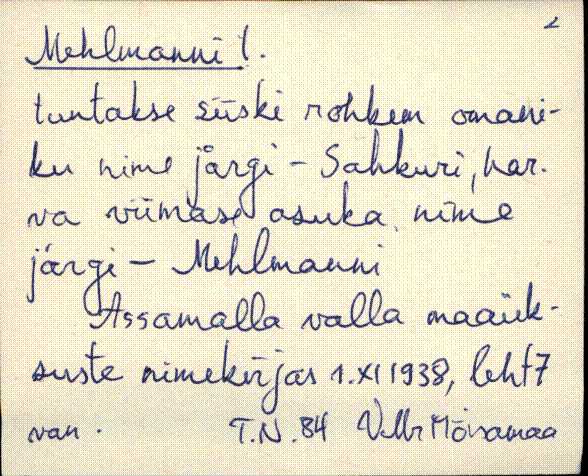 2
Mehlmanni t.
tuntakse siiski rohkem omani-
ku nime järgi - Sahkuri, har-
va viimase asuka nime
järgi - Mehlmanni
Assamalla valla maaük-
suste nimekirjas 1.XI 1938, leht 7
van. T.N. 84 VMr Mõisamaa